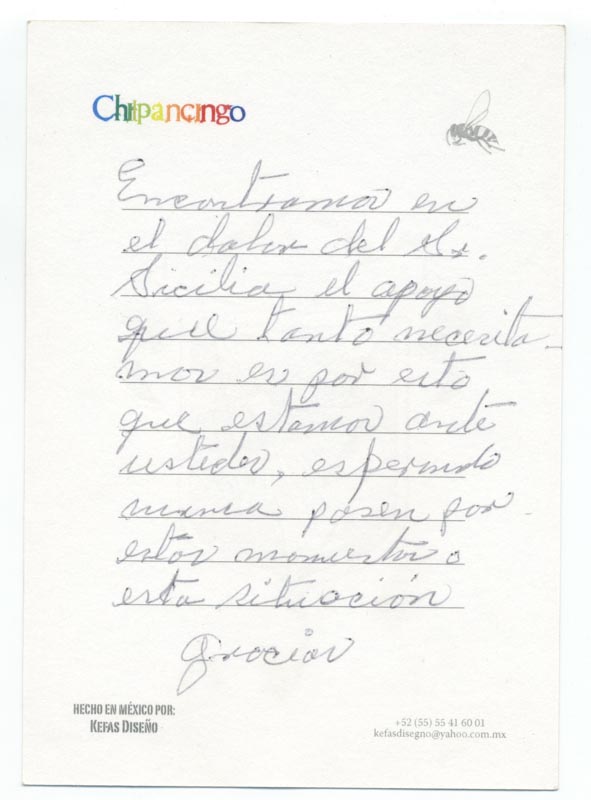 Chilpancingo
Encontramos en
el dolor del Sr.
Sicilia el apoyo
que tanto necesita-
mos es por esto
que estamos ante
ustedes, esperando
nunca pasen por
estos momentos o
esta situación
gracias
HECHO EN MÉXICO POR:
KEFAS DISEÑO
+52 (55) 55 41 60 01
kefasdisegno@yahoo.com.mx